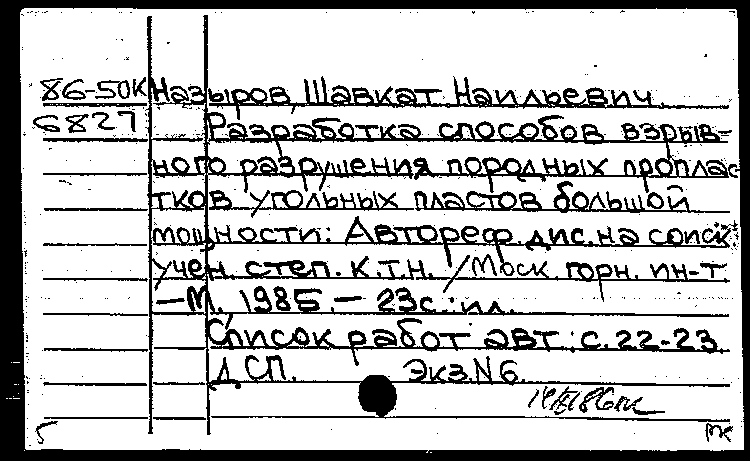 86-50К Назыров, Шавкат Наильевич.
6827 Разработка способов взрыв-
ного разрушения породных proплас
тков угольных пластов большой
мощности: Автореф. дис. на соиск
учен. степ. к.т.н. /Моск. горн. ин-т
—М. 1985. — 23с.: ил.
Список работ авт.: с. 22-23.
ДСП. Экз.N6.
5